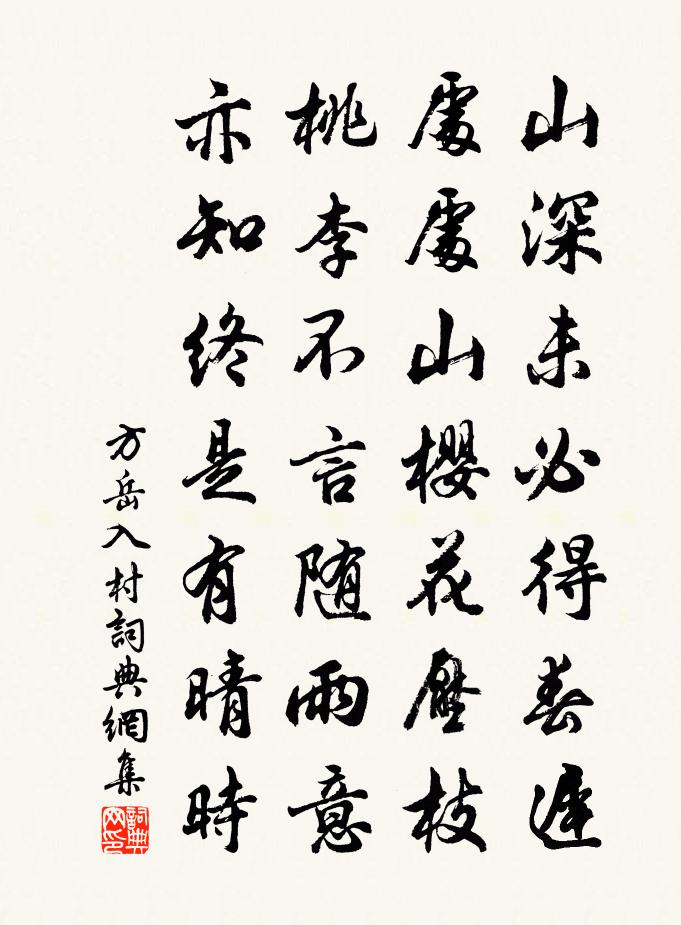 山深未必得春遲
處處山櫻花壓枝
桃李不言随雨意
亦知終是有晴時
方岳入村詞典網集
詞典网印